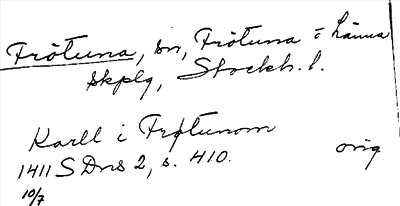 Frötuna, sn, Frötuna o Länna
skplg, Stockh. l.
Karll i Frøtunom
1411 SDns 2, s. 410. orig
10/7